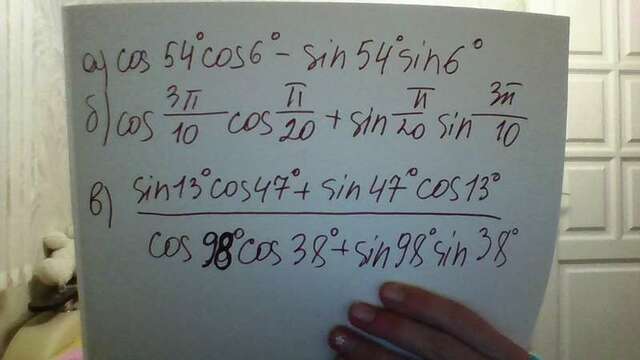 а) cos 54° cos 6° - sin 54° sin 6°
б) cos 3π/10 cos π/20 + sin π/20 sin 3π/10
в) (sin 13° cos 47° + sin 47° cos 13°) / (cos 98° cos 38° + sin 98° sin 38°)